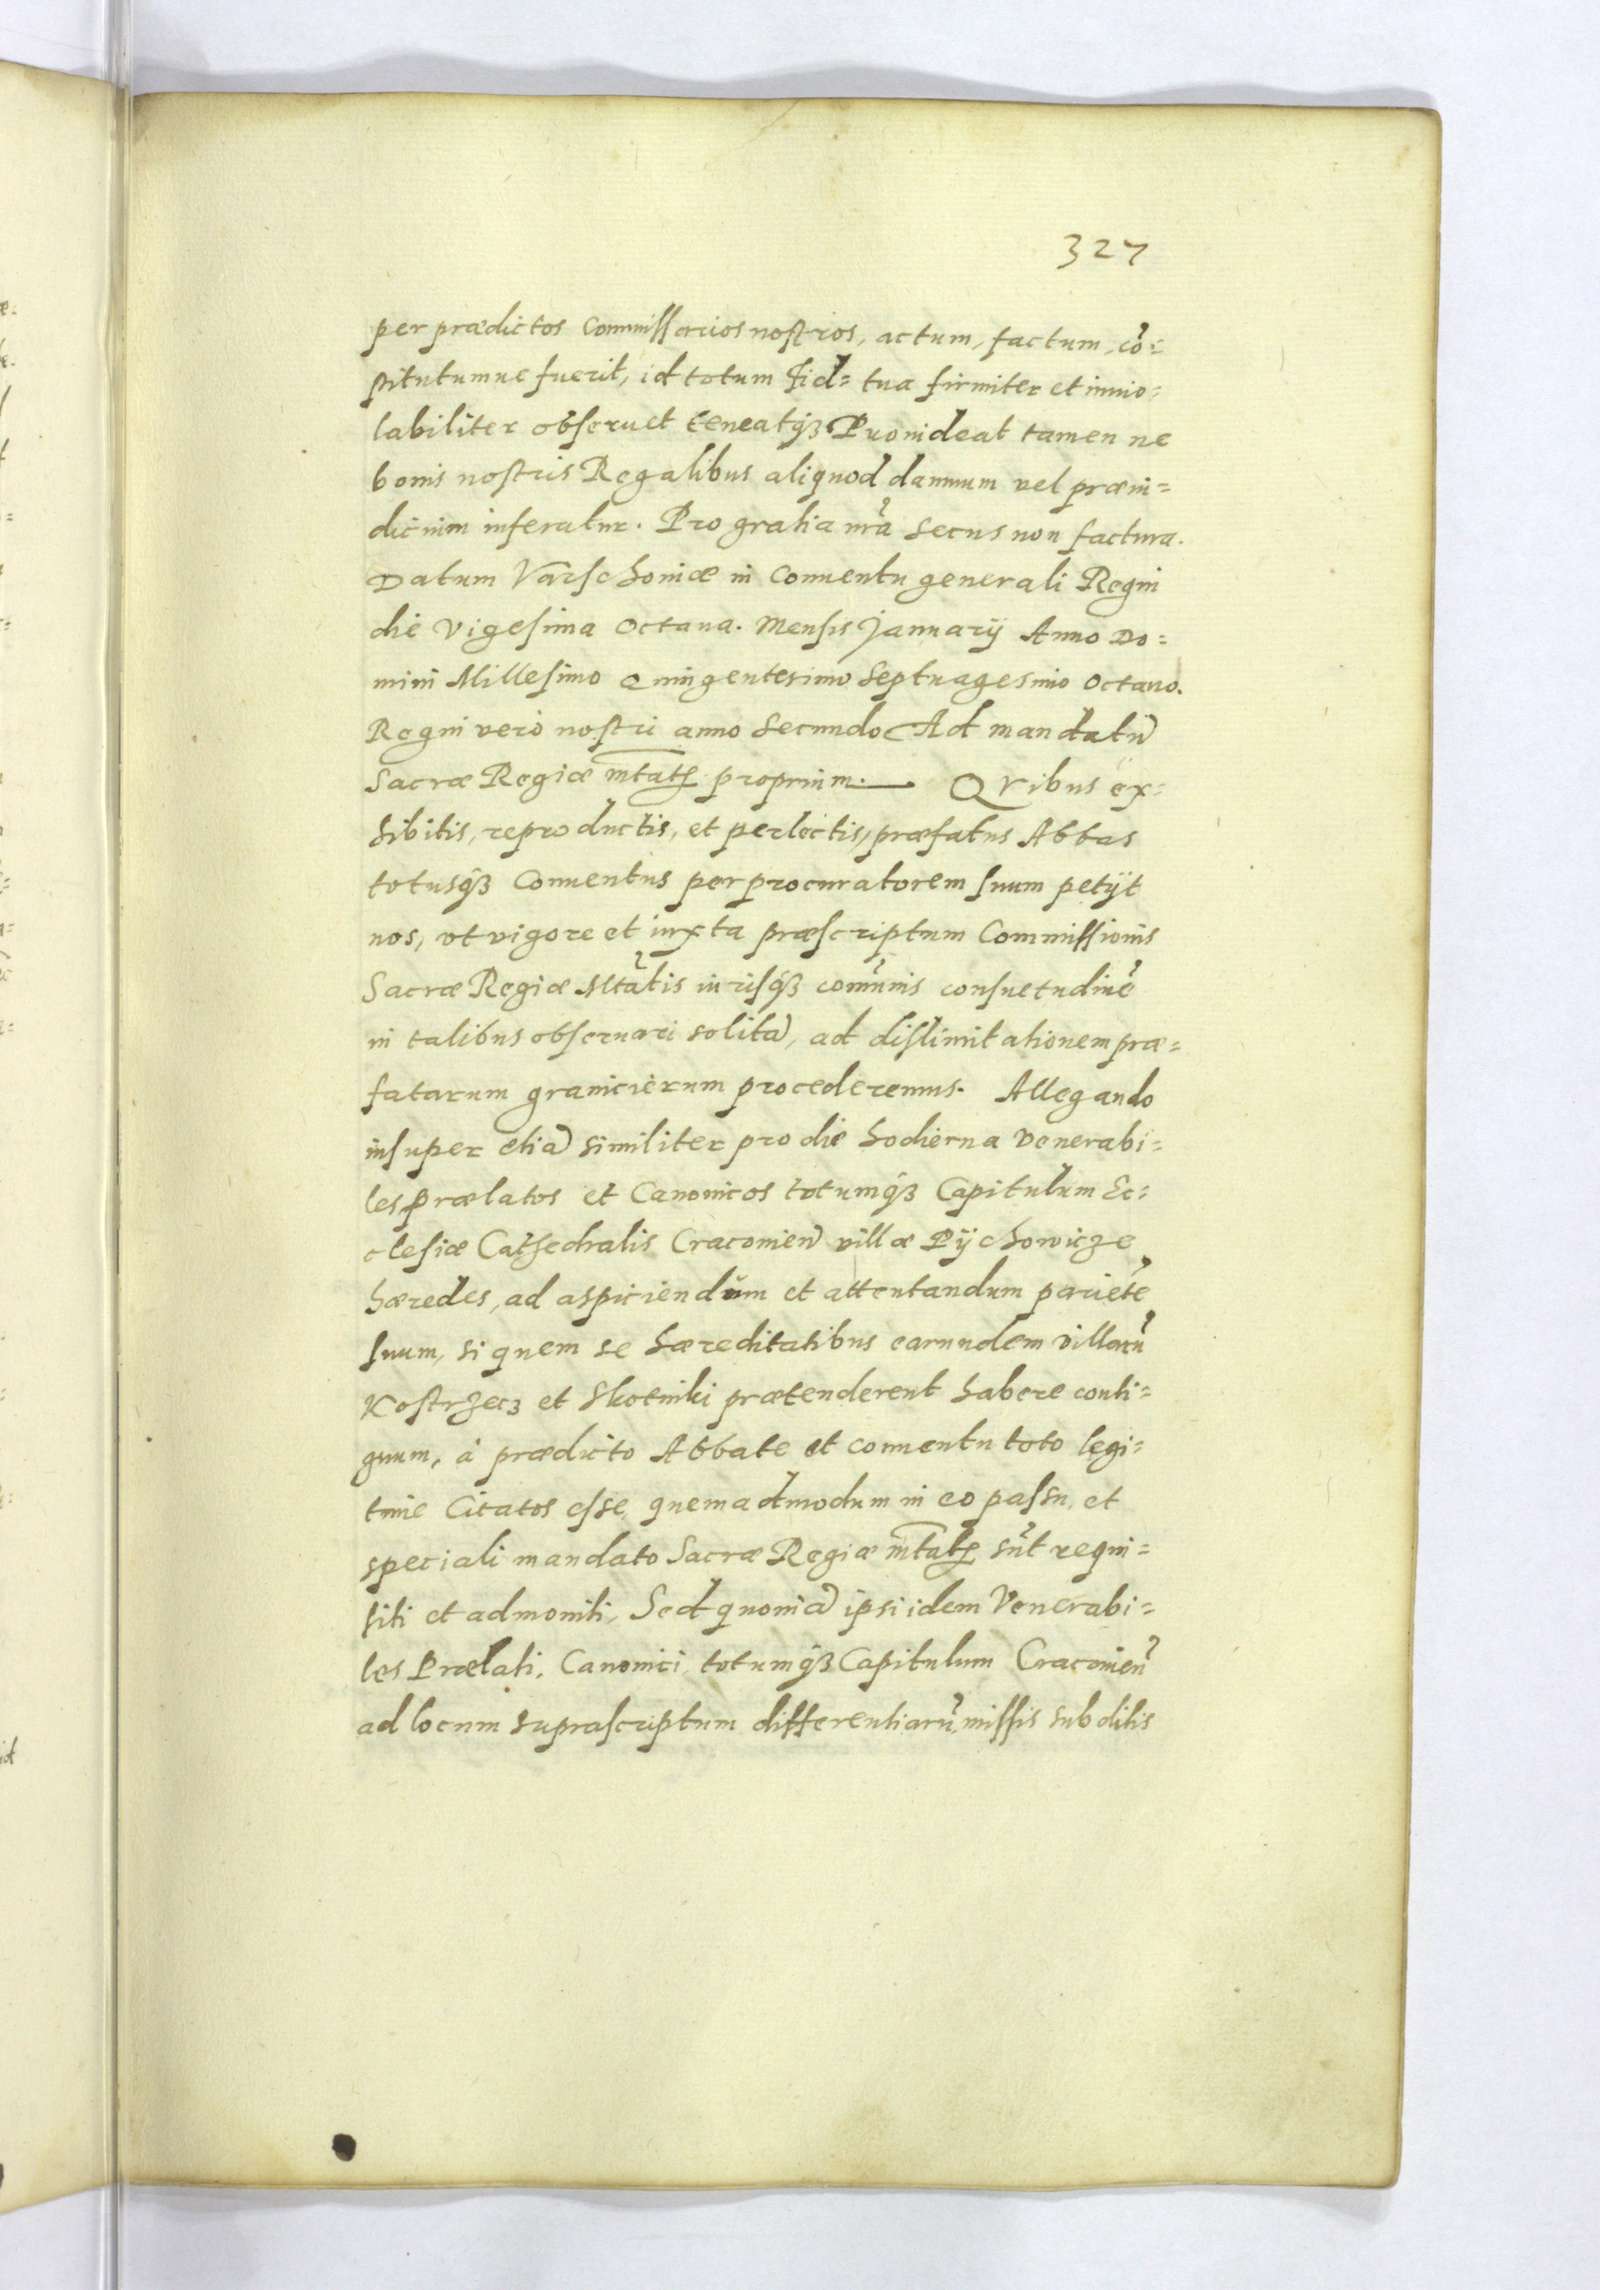 327
per prædictos Commissarios nostros, actum, factum, cõ=
stitutumue fuerit, id totum Fid= tua firmiter et inuio=
labiliter obseruet teneatq́ꝫ Prouideat tamen ne
bonis nostris Regalibus aliquod damnum vel præiu=
dicium inferatur. Pro gratia nr̃a secus non factura.
Datum Varschouiæ in Conuentu generali Regni
die Vigesima Octaua. Mensis Januarij Anno Do=
mini Millesimo Quingentesimo Septuagesimo Octauo.
Regni verò nostri anno Secundo Ad mandatũ
Sacræ Regiæ mtatꝭ proprium. Qvibus ex=
hibitis, reproductis, et perlectis, præfatus Abbas
totusq́ꝫ Conuentus per procuratorem suum petijt
nos, vt vigore et iuxta præscriptum Commissionis
Sacræ Regiæ Mtãtis iurisq́ꝫ com̃unis consuetudinẽ
in talibus obseruari solitã, ad dislimitationem præ=
fatarum granicierum procederemus. Allegando
insuper etiã similiter pro die hodierna Venerabi=
les Prælatos et Canonicos totumq́ꝫ Capitulum Ec=
clesiæ Cathedralis Cracouieñ villæ Pijchowicze
hæredes, ad aspiciendum et attentandum parietẽ
suum, si quem se hæreditatibus earundem villarũ
Kostrzecz et Skotniki prætenderent habere conti=
guum, à prædicto Abbate et conuentu toto legi=
time Citatos esse, quemadmodum in eo passu, et
speciali mandato Sacræ Regiæ mtatꝭ sũt requi=
siti et admoniti, Sed quoniã ipsi idem Venerabi=
les Prælati, Canonici, totumq́ꝫ Capitulum Cracouieñ
ad locum suprascriptum differentiarũ, missis subditis